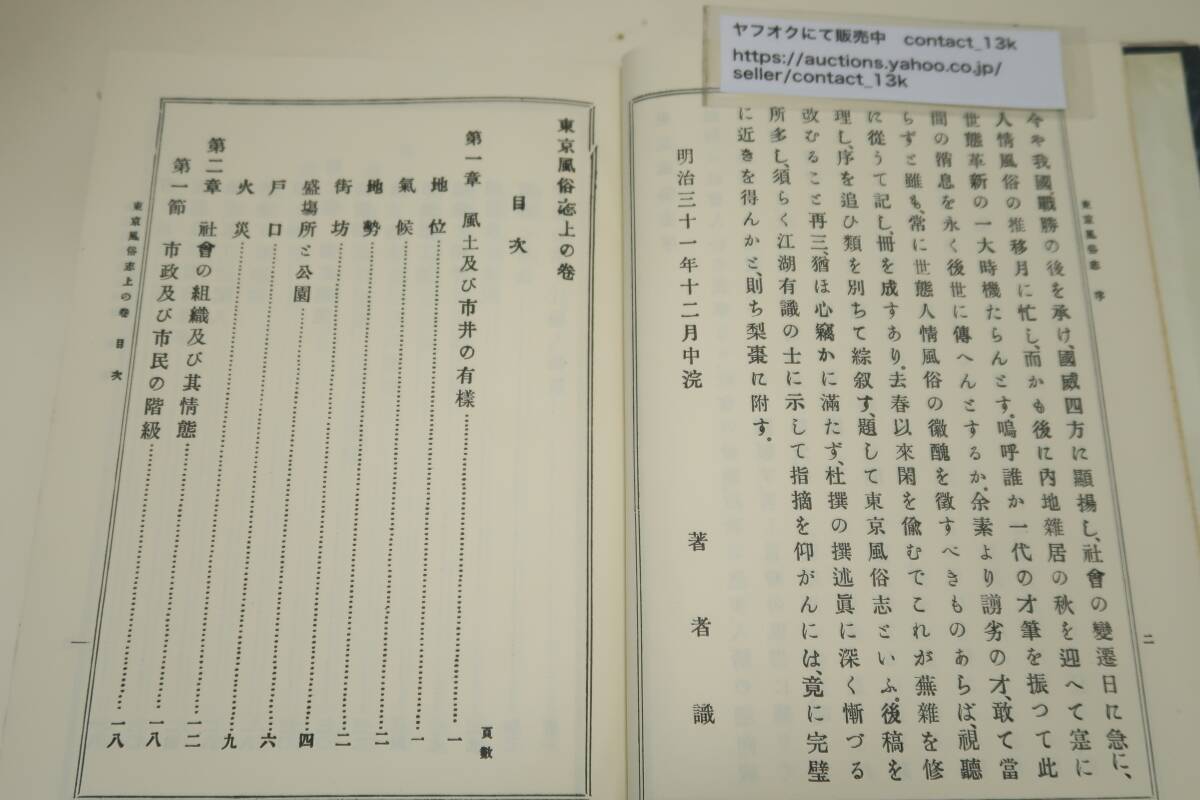 ヤフオクにて販売中 contact_13k
https://auctions.yahoo.co.jp/
seller/contact_13k
東京風俗志 序
二
今や我國、戰勝の後を承け、國威四方に顯揚し、社會の變遷日に急に、
人情風俗の推移月に忙し、而かも後に內地雜居の秋を迎へて寔に
世態革新の一大時機たらんとす。嗚呼誰か一代の才筆を振つて此
間の消息を永く後世に傳へんとするか。余素より謭劣の才、敢て當
らずと雖も、常に世態人情風俗の徽醜を徵すべきものあらば、視聽
に從うて記し、冊を成すあり。去春以來閑を偸むでこれが蕪雜を修
理し、序を追ひ類を別ちて綜叙す、題して東京風俗志といふ。後稿を
改むること再三、猶ほ心竊かに滿たず、杜撰の撰述眞に深く慚づる
所多し、須らく江湖有識の士に示して指摘を仰がんには、竟に完璧
に近きを得んかと、則ち梨棗に附す。
明治三十一年十二月中浣
著者識
東京風俗志上の卷
目次
頁數
第一章 風土及び市井の有樣……一
地位……一
氣候……一
地勢……二
街坊……二
盛塲所と公園……四
戶口……六
火災……九
第二章 社會の組織及び其情態……一二
第一節 市政及び市民の階級……一八
一八
東京風俗志上の卷 目次
一